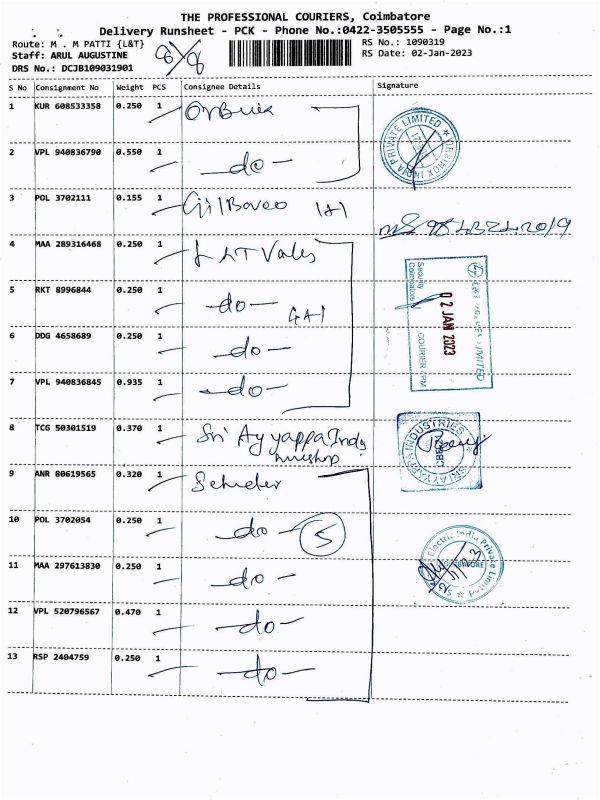 THE PROFESSIONAL COURIERS, Coimbatore
Delivery Runsheet - PCK - Phone No.:0422-3505555 - Page No.:1
Route: M . M PATTI {L&T}
RS No.: 1090319
Staff: ARUL AUGUSTINE
RS Date: 02-Jan-2023
DRS No.: DCJB109031901
S No Consignment No Weight PCS Consignee Details Signature
1 KUR 608533358 0.250 1
2 VPL 940836790 0.550 1 -do-
PRIVATE LIMITED
3 POL 3702111 0.155 1
4 MAA 289316468 0.250 1 L&T Valves
5 RKT 8996844 0.250 1 -do-
6 DDG 4658689 0.250 1 -do-
7 VPL 940836845 0.935 1 -do-
Security
Coimbatore
02 JAN 2023
COURIER
LIMITED
8 TCG 50301519 0.370 1 Sri Ayyappa Indu
SRI AYYAPPA INDUSTRIES
9 ANR 80619565 0.320 1
10 POL 3702054 0.250 1 -do- 5
Electric India Private Limited
11 MAA 297613830 0.250 1 -do-
12 VPL 520796567 0.470 1 -do-
13 RSP 2404759 0.250 1 -do-